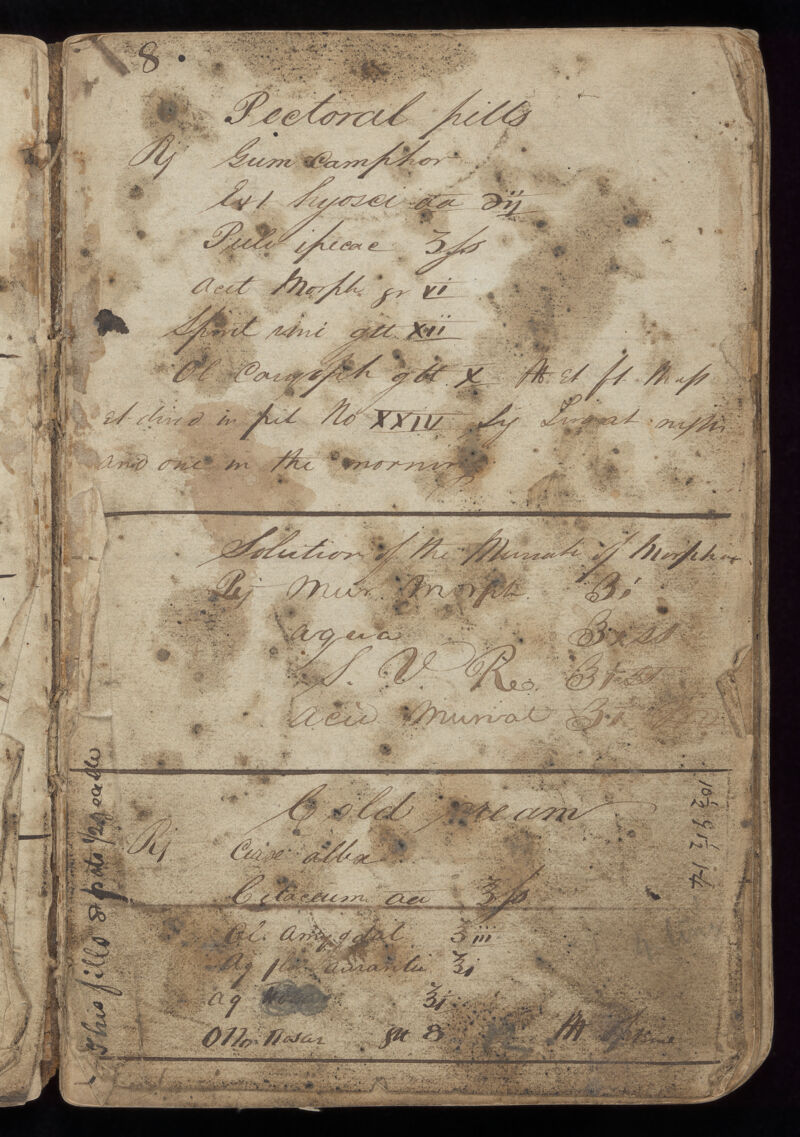 8
Pectoral pills
Rj Gum Camphor
Ext hyosci aa ℈ij
Pulv ipecac ʒss
Acet Morph gr vi
Spirit vini gtt xii
Ol Caryoph gtt X M et ft Mass
et divid in pil No XXIV Sig Two at night
and one in the morning
Solution of the Muriate of Morphia
Rj Mur Morph ʒi
aqua
S. V R.
Acid Muriat
Cold cream
Rj Cerae albae
Cetaceum aa ℥ss
Ol. Amygdal ℥iii
Aq flor aurantii ℥j
Aq Rosar ℥j
Otto Rosar gtt 8 M
This fills 8 pots 1/2 oz
10½ 9½ 14